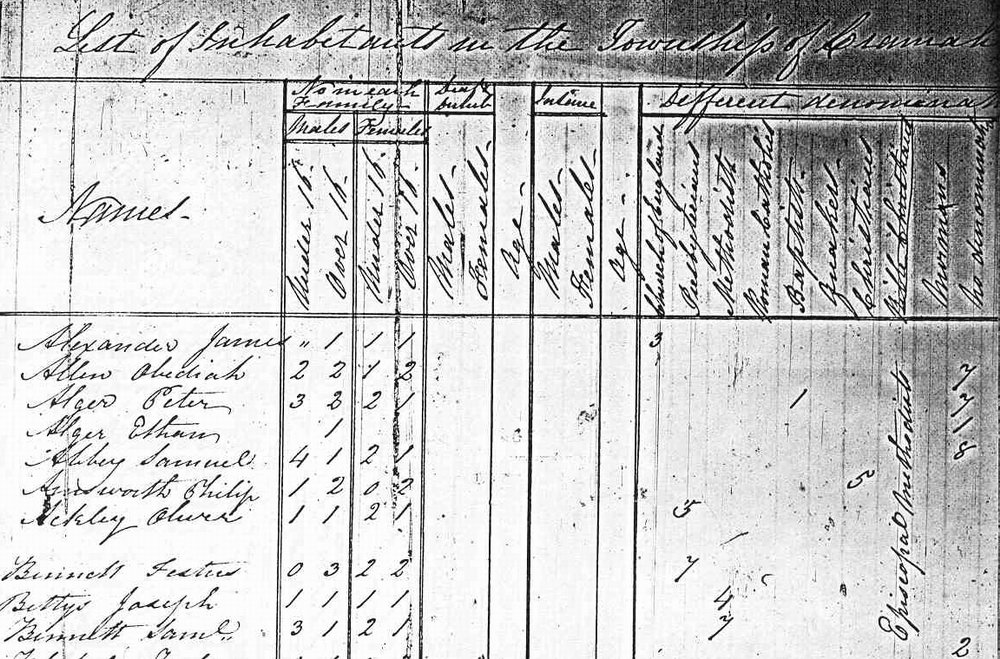 List of Inhabitants in the Township of Cramah
No in each Deaf & Insane Different denominat
Family Dumb
Males Females
Names Under 16 Over 16 Under 16 Over 16 Males Females Age Males Females Age Church of England Presbyterians Methodists Roman Catholics Baptists Quakers Christians Mormons No denomination
Alexander James " 1 1 1 3
Allen Obediah 2 2 1 2 7
Alger Peter 3 2 2 1 1 7
Alger Ethan 1 1
Abbey Samuel 4 1 2 1 8
Amsworth Philip 1 2 0 2 5
Ackley Oliver 1 1 2 1 5
Episcopal Methodists
Bennett Festus 0 3 2 2 7
Bettys Joseph 1 1 1 1 4
Bennett Saml. 3 1 2 1 7
2